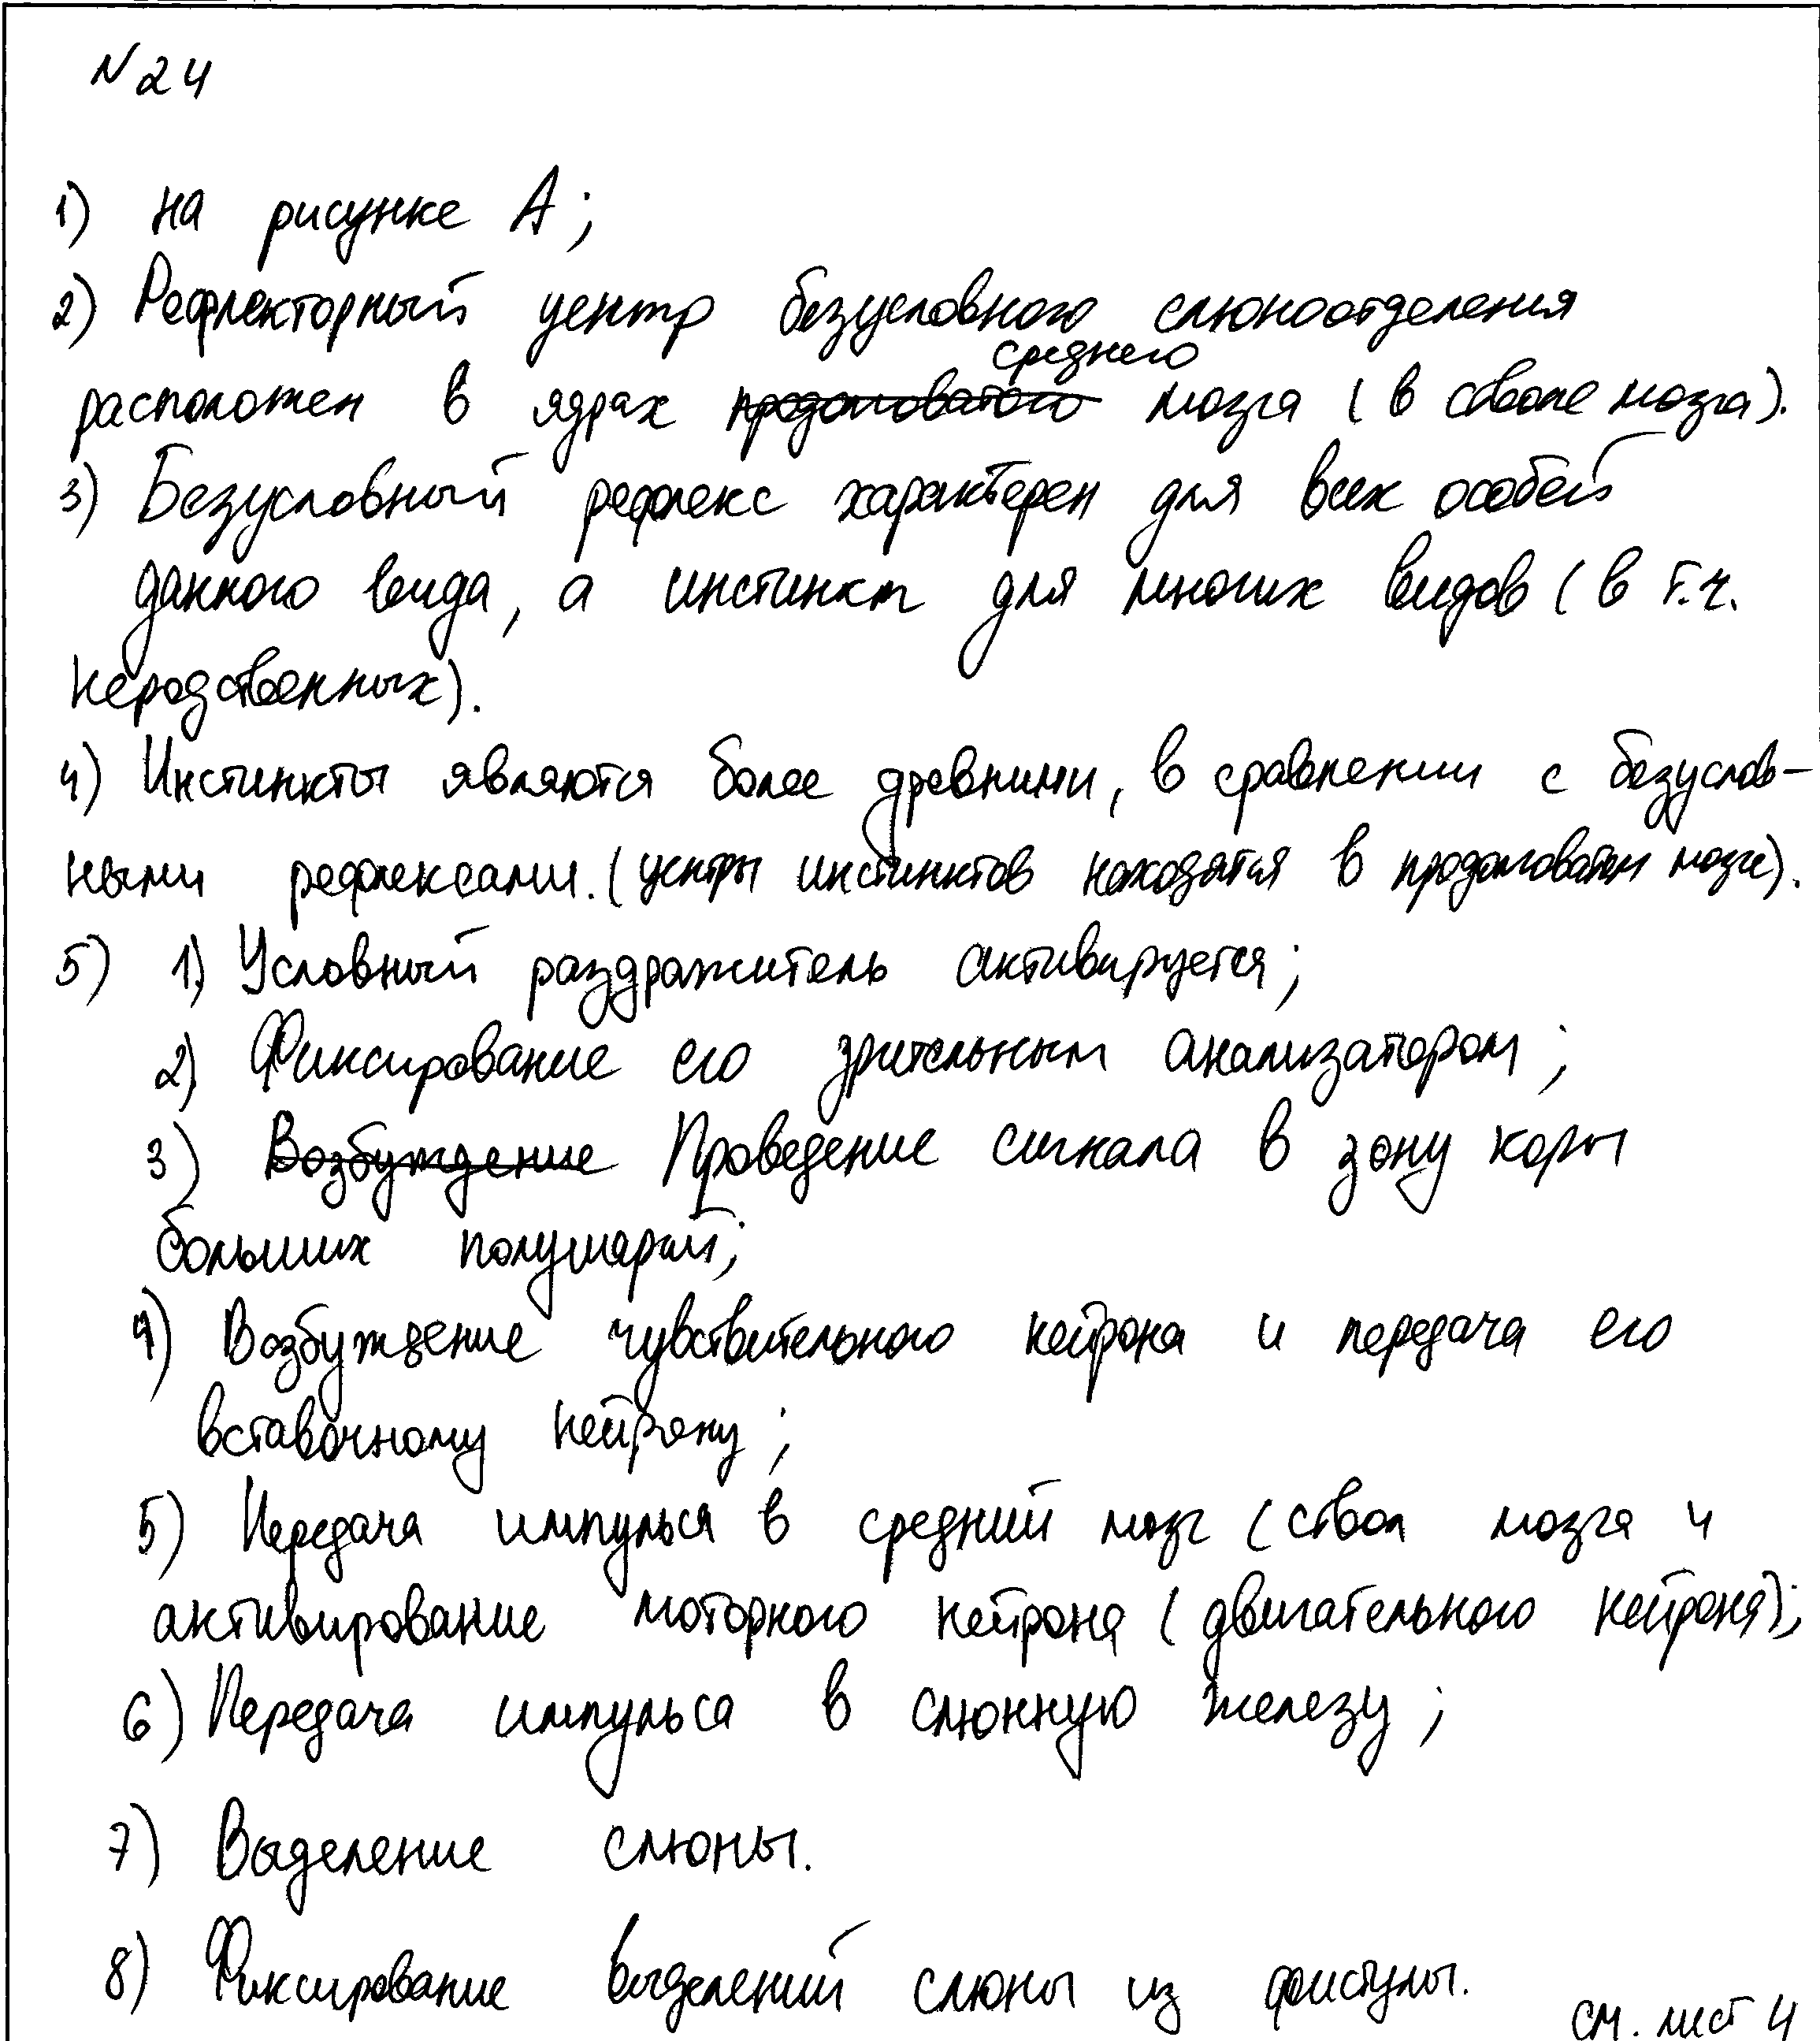 N 24
1) на рисунке А;
2) Рефлекторный центр безусловного слюноотделения
среднего
расположен в ядрах продолговатого мозга (в стволе мозга).
3) Безусловный рефлекс характерен для всех особей
данного вида, а инстинкт для многих видов (в т.ч.
неродственных).
4) Инстинкты являются более древними, в сравнении с безуслов-
ными рефлексами. (центры инстинктов находятся в продолговатом мозге).
5) 1) Условный раздражитель активируется;
2) Фиксирование его зрительным анализатором;
3) Возбуждение Проведение сигнала в зону коры
больших полушарий;
4) Возбуждение чувствительного нейрона и передача его
вставочному нейрону;
5) Передача импульса в средний мозг (ствол мозга и
активирование моторного нейрона (двигательного нейрона);
6) Передача импульса в слюнную железу;
7) Выделение слюны.
8) Фиксирование выделений слюны из фистулы.
см. лист 4